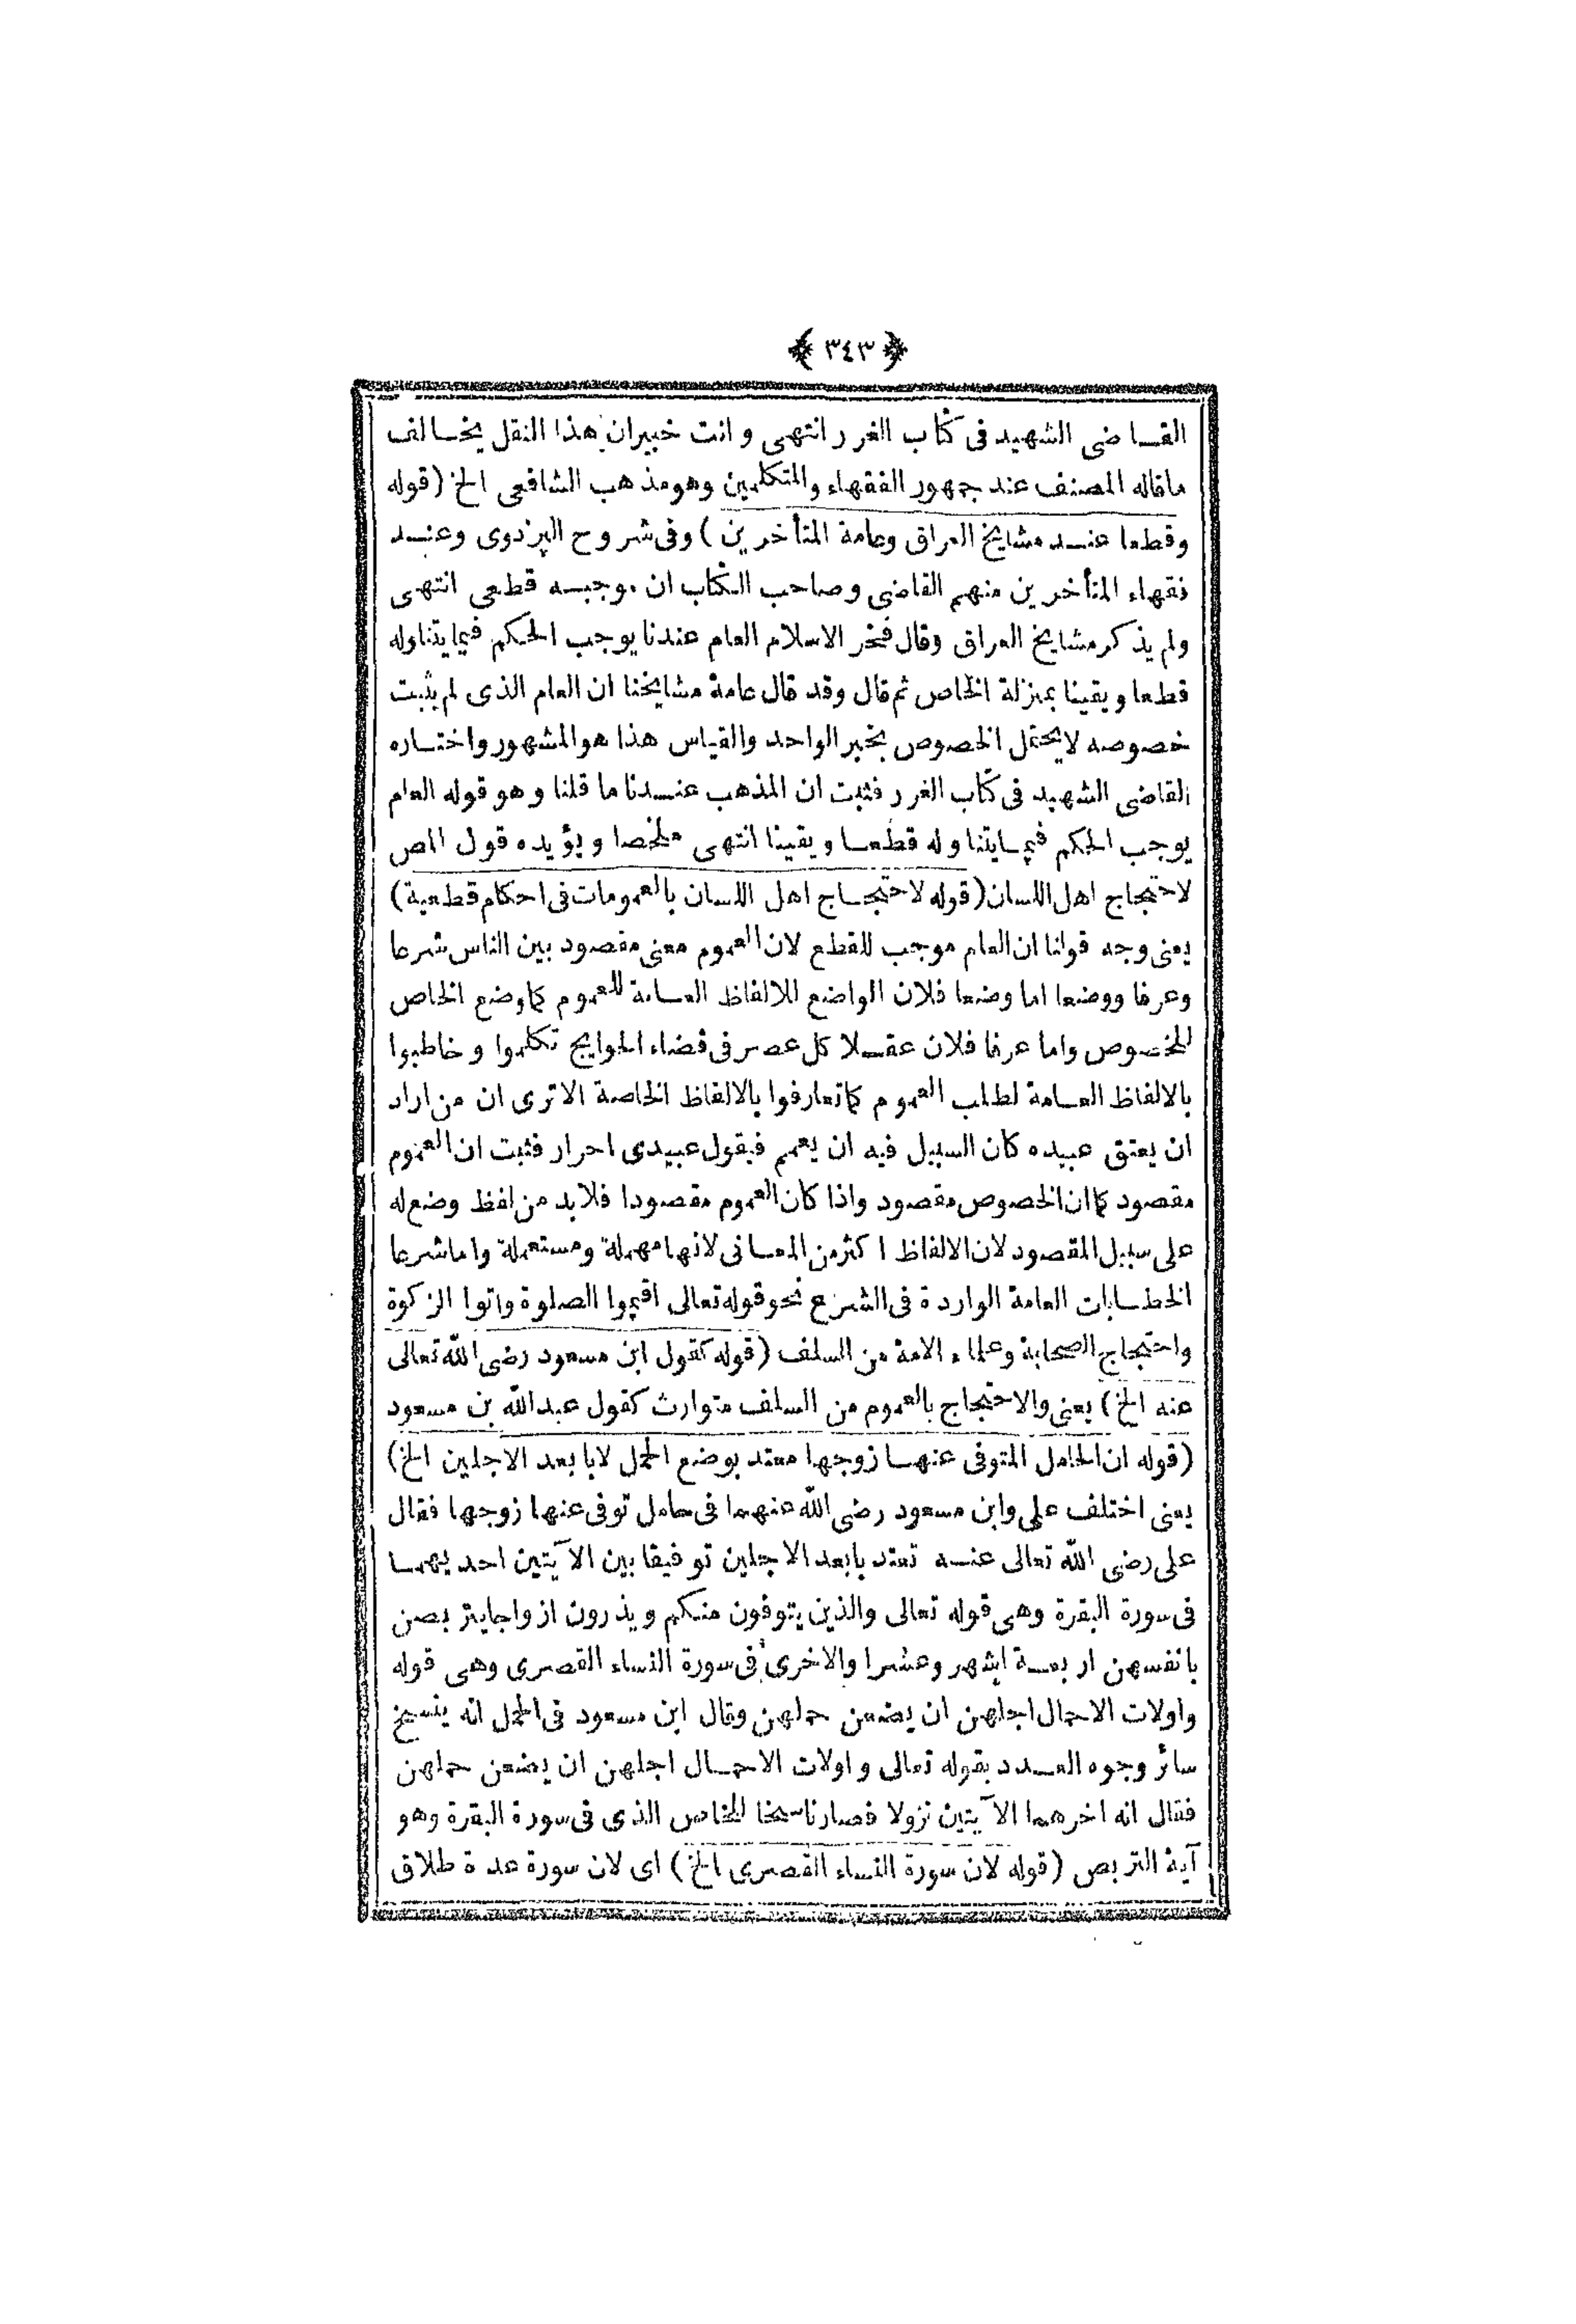 ﴿ ٣٤٣ ﴾
القاضى الشهيد فى كتاب الغرر انتهى وانت خبيران هذا النقل يخالف
ماقاله المصنف عند جمهور الفقهاء والمتكلمين وهومذهب الشافعى الخ (قوله
وقطعا عند مشايخ العراق وعامة المتأخرين) وفى شروح البزدوى وعند
فقهاء المتأخرين منهم القاضى وصاحب الكتاب ان موجبه قطعى انتهى
ولم يذكر مشايخ العراق وقال فخر الاسلام العام عندنا يوجب الحكم فيما يتناوله
قطعا ويقينا بمنزلة الخاص ثم قال وقد قال عامة مشايخنا ان العام الذى لم يثبت
خصوصه لا يحتمل الخصوص بخبر الواحد والقياس هذا هو المشهور واختاره
القاضى الشهيد فى كتاب الغرر فثبت ان المذهب عندنا ما قلنا وهو قوله العام
يوجب الحكم فيما يتناوله قطعا ويقينا انتهى ملخصا ويؤيده قول المص
لاحتجاج اهل اللسان (قوله لاحتجاج اهل اللسان بالعمومات فى احكام قطعية)
يعنى وجه قولنا ان العام موجب للقطع لان العموم معنى مقصود بين الناس شرعا
وعرفا ووضعا اما وضعا فلان الواضع للالفاظ العامة للعموم كما وضع الخاص
للخصوص واما عرفا فلان عقلا كل عصر فى قضاء الحوايج تكلموا وخاطبوا
بالالفاظ العامة لطلب العموم كما تعارفوا بالالفاظ الخاصة الاترى ان من اراد
ان يعتق عبيده كان السبيل فيه ان يعمم فيقول عبيدى احرار فثبت ان العموم
مقصود كما ان الخصوص مقصود واذا كان العموم مقصودا فلابد من لفظ وضع له
على سبيل المقصود لان الالفاظ اكثر من المعانى لانها مهملة ومستعملة واما شرعا
الخطابات العامة الواردة فى الشرع نحو قوله تعالى اقيموا الصلوة واتوا الزكوة
واحتجاج الصحابة وعلماء الامة من السلف (قوله كقول ابن مسعود رضى الله تعالى
عنه الخ) يعنى والاحتجاج بالعموم من السلف متوارث كقول عبدالله بن مسعود
(قوله ان الحامل المتوفى عنها زوجها معتد بوضع الحمل لابابعد الاجلين الخ)
يعنى اختلف على وابن مسعود رضى الله عنهما فى حامل توفى عنها زوجها فقال
على رضى الله تعالى عنه تعتد بابعد الاجلين توفيقا بين الآيتين احديهما
فى سورة البقرة وهى قوله تعالى والذين يتوفون منكم ويذرون ازواجا يتربصن
بانفسهن اربعة اشهر وعشرا والاخرى فى سورة النساء القصرى وهى قوله
واولات الاحمال اجلهن ان يضعن حملهن وقال ابن مسعود فى الحمل انه ينسخ
سائر وجوه العدد بقوله تعالى واولات الاحمال اجلهن ان يضعن حملهن
فقال انه اخرهما الآيتين نزولا فصار ناسخا للخاص الذى فى سورة البقرة وهو
آية التربص (قوله لان سورة النساء القصرى الخ) اى لان سورة عدة طلاق